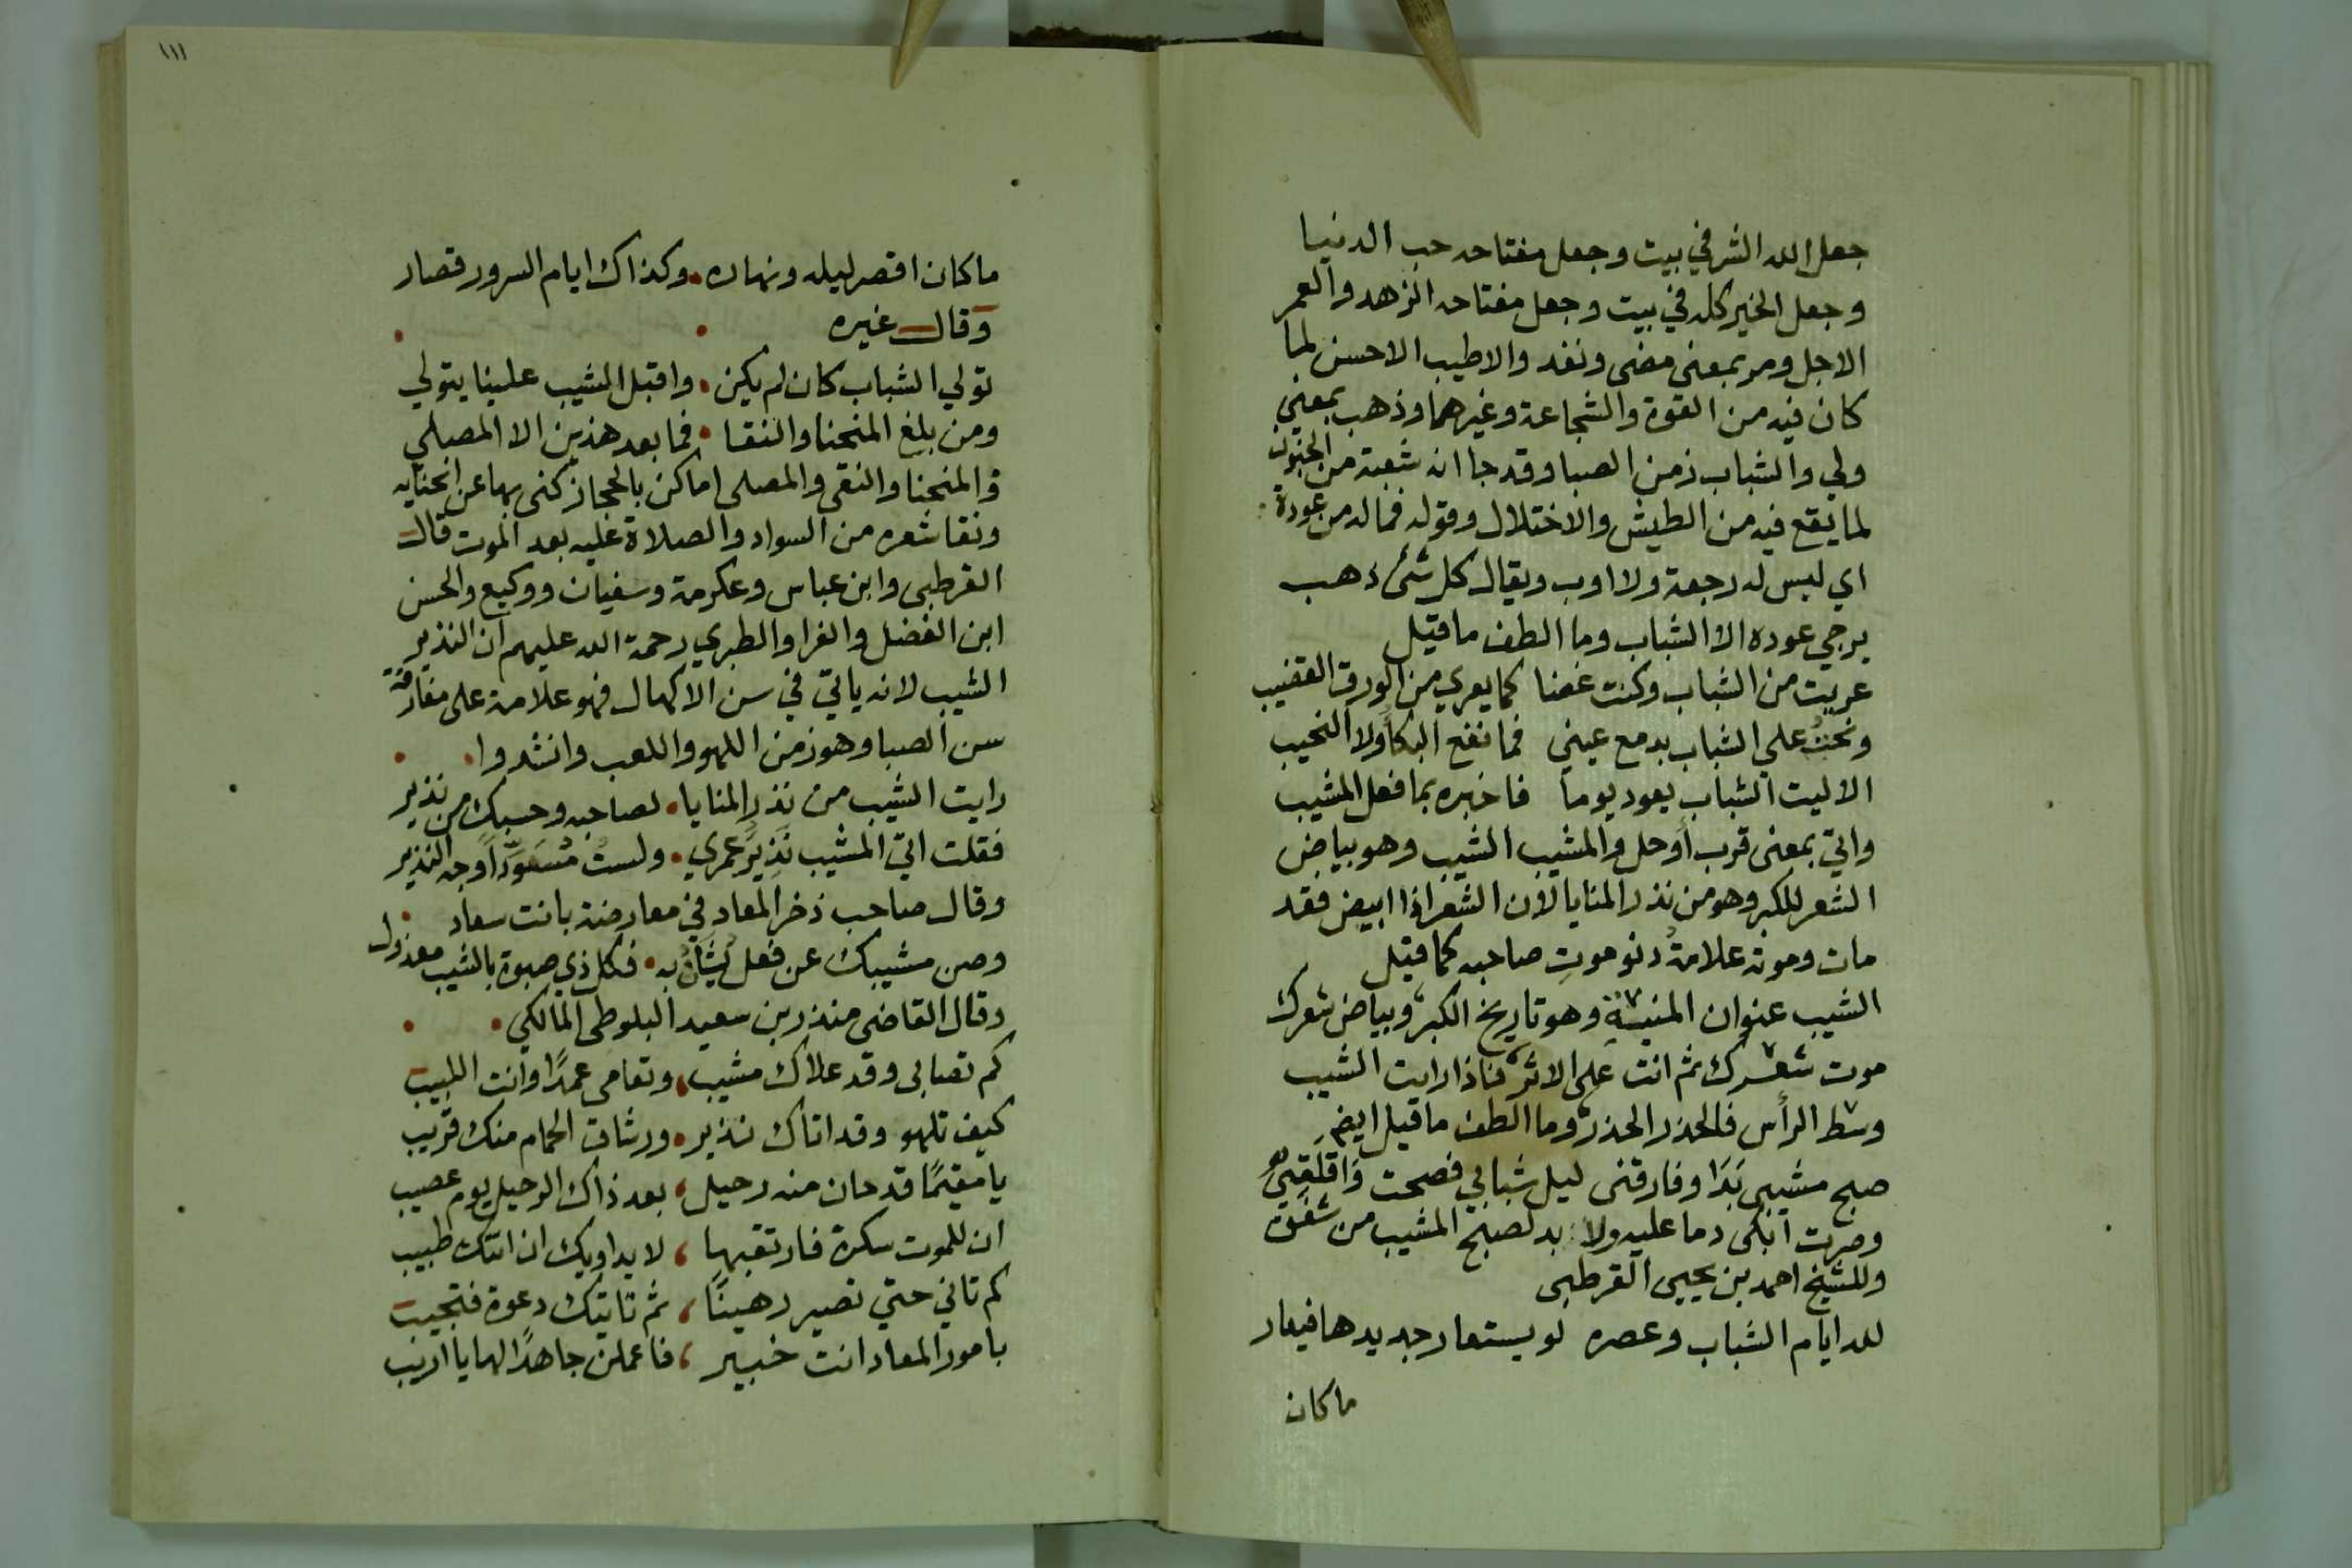 جعل الله الشر في بيت وجعل مفتاحه حب الدنيا
وجعل الخير كله في بيت وجعل مفتاحه الزهد والعمر
الاجل ومر بمعنى مضى ونفد والاطيب الاحسن لما
كان فيه من القوة والشجاعة وغيرهما وذهب بمعني
ولي والشباب زمن الصبا وقد جا انه شعبة من الجنون
لما يقع فيه من الطيش والاختلال وقوله فماله من عودة
اي ليس له رجعة ولا اوب ويقال كل شئ ذهب
يرجي عوده الا الشباب وما الطف ما قيل
عريت من الشباب وكنت غصنا كما يعري من الورق القضيب
ونحت علي الشباب بدمع عيني فما نفع البكا ولا النحيب
الا ليت الشباب يعود يوما فاخبره بما فعل المشيب
واتي بمعنى قرب أو حل والمشيب الشيب وهو بياض
الشعر للكبر وهو من نذر المنايا لان الشعر اذا ابيض فقد
مات وموته علامةُ دنو موتِ صاحبه كما قيل
الشيب عنوان المنيةِ وهو تاريخ الكبر وبياض شعرك
موت شعرك ثم انت على الاثر فاذا رايت الشيب
وسط الرأس فالحذر الحذر وما الطف ما قيل ايضا
صبح مشيبي بَدَا وفارقني ليل شبابي فصحت وَاقَلَقِي
وصرت ابكى دما عليه ولا بد لصبح المشيب من شفق
وللشيخ احمد بن يحيى القرطبى
لله ايام الشباب وعصره لو يستعار جديدها فيعار
ماكان
١١١
ماكان اقصر ليله ونهاره • وكذاك ايام السرور قصار
وقال غيره
تولي الشباب كان لم يكن • واقبل الشيب علينا يتولي
ومن بلغ المنحنا والنقا • فما بعد هذين الا المصلي
فالمنحنا والنقى والمصلى اماكن بالحجاز كنى بها عن انحنايه
ونقا شعره من السواد والصلاة عليه بعد الموت قال
القرطبى وابن عباس وعكرمة وسفيان ووكيع والحسن
ابن الفضل والفرا والطبري رحمة الله عليهم ان النذير
الشيب لانه ياتي في سن الاكهال فهو علامة على مفارقة
سن الصبا وهو زمن اللهو واللعب وانشدوا •
رايت الشيب من نذر المنايا • لصاحبه وحسبك من نذير
فقلت اتي المشيب نَذِيرَ عمري • ولستُ مُسَوِّداً وجه النذير
وقال صاحب ذخر المعاد في معارضة بانت سعاد •
وصن مشيبك عن فعل يُشَانُ به • فكل ذي صبوة بالشيب معذول
وقال القاضى منذر بن سعيد البلوطى المالكي •
كم تصابى وقد علاك مشيب، وتعامى عمدًا وانت اللبيب
كيف تلهو وقد اتاك نذير • ورشات الحمام منك قريب
يا مقيمًا قد حان منه رحيل، بعد ذاك الرحيل يوم عصيب
ان للموت سكرة فارتقبها، لا يداويك ان اتتك طبيب
كم تاني حتي تصير رهينًا، ثم تاتيك دعوة فتجيب
بامور المعاد انت خبير، فاعملن جاهدًا لها يا اريب